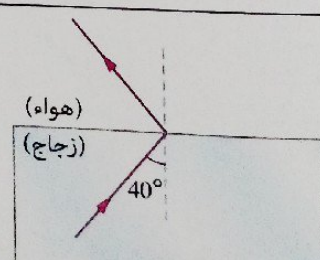 (هواء)
(زجاج)
40°